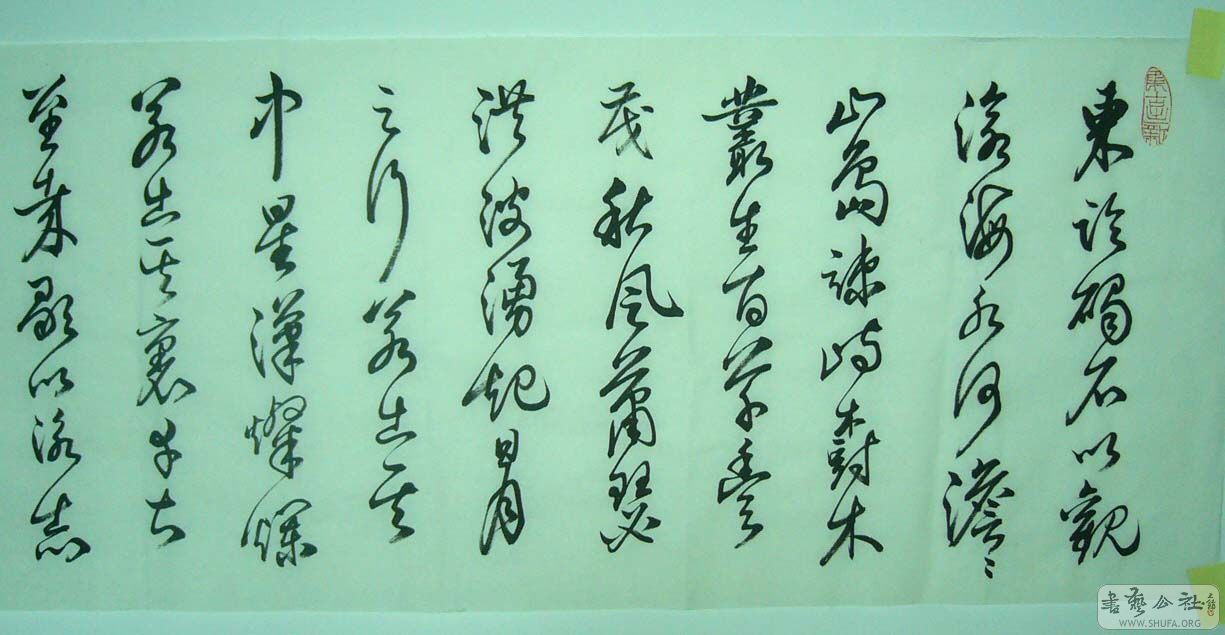 東臨碣石以觀
滄海水何澹〻
山島竦峙樹木
叢生百草豐
茂秋風蕭瑟
洪波湧起日月
之行若出其
中星漢燦爛
若出其裏幸甚
至哉歌以詠志
書藝公社
WWW.SHUFA.ORG